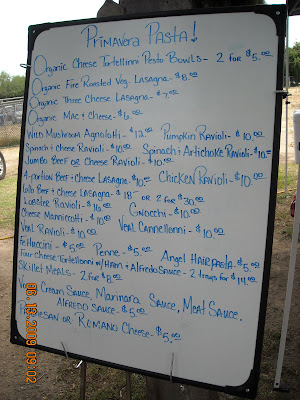 Primavera Pasta!
Organic Cheese Tortellinni Pesto Bowls - 2 for $5.00
Organic Fire Roasted Veg. Lasagna - $8.00
Organic Three Cheese Lasagna - $7.00
Organic Mac + Cheese - $6.00
Wild Mushroom Agnolotti - $12.00 Pumpkin Ravioli - $10.00
Spinach + Cheese Ravioli - $10.00 Spinach + Artichoke Ravioli - $10.00
Jumbo Beef or Cheese Ravioli - $10.00
4-portion Beef + Cheese Lasagna - $10.00 Chicken Ravioli - $10.00
Beef + Cheese Lasagna - $18.00 or 2 for $30.00
Lobster Ravioli - $16.00 Gnocchi - $10.00
Cheese Mannicotti - $10.00 Veal Cannellonni - $10.00
Veal Ravioli - $10.00
Fettuccini - $5.00 Penne - $5.00 Angel Hair Pasta - $5.00
Four Cheese Tortellonni w/ Ham + Alfredo Sauce - 2 trays for $14.00
Skillet Meals - 2 for $8.00
Cream Sauce, Marinara Sauce, Meat Sauce,
Alfredo Sauce - $5.00
Parmesan or Romano Cheese - $5.00
06.13.2009 09:02